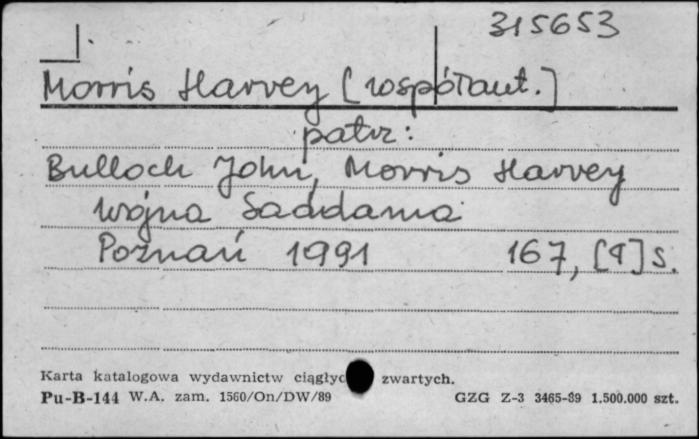 315653
Morris Harvey [współaut.]
patrz:
Bulloch John, Morris Harvey
Wojna Saddama
Poznań 1991 167, [9] s.
Karta katalogowa wydawnictw ciągłyc zwartych.
Pu-B-144 W.A. zam. 1560/On/DW/89 GZG Z-3 3465-89 1.500.000 szt.